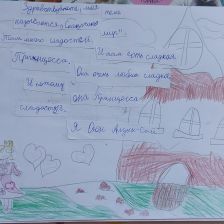 Здравствуйте, моя тема
называется "Сладкий
мир".
Там много сладостей.
И там есть сладкая
Принцесса.
Она очень любила сладкое
И потому
она Принцесса
сладостей.
Я